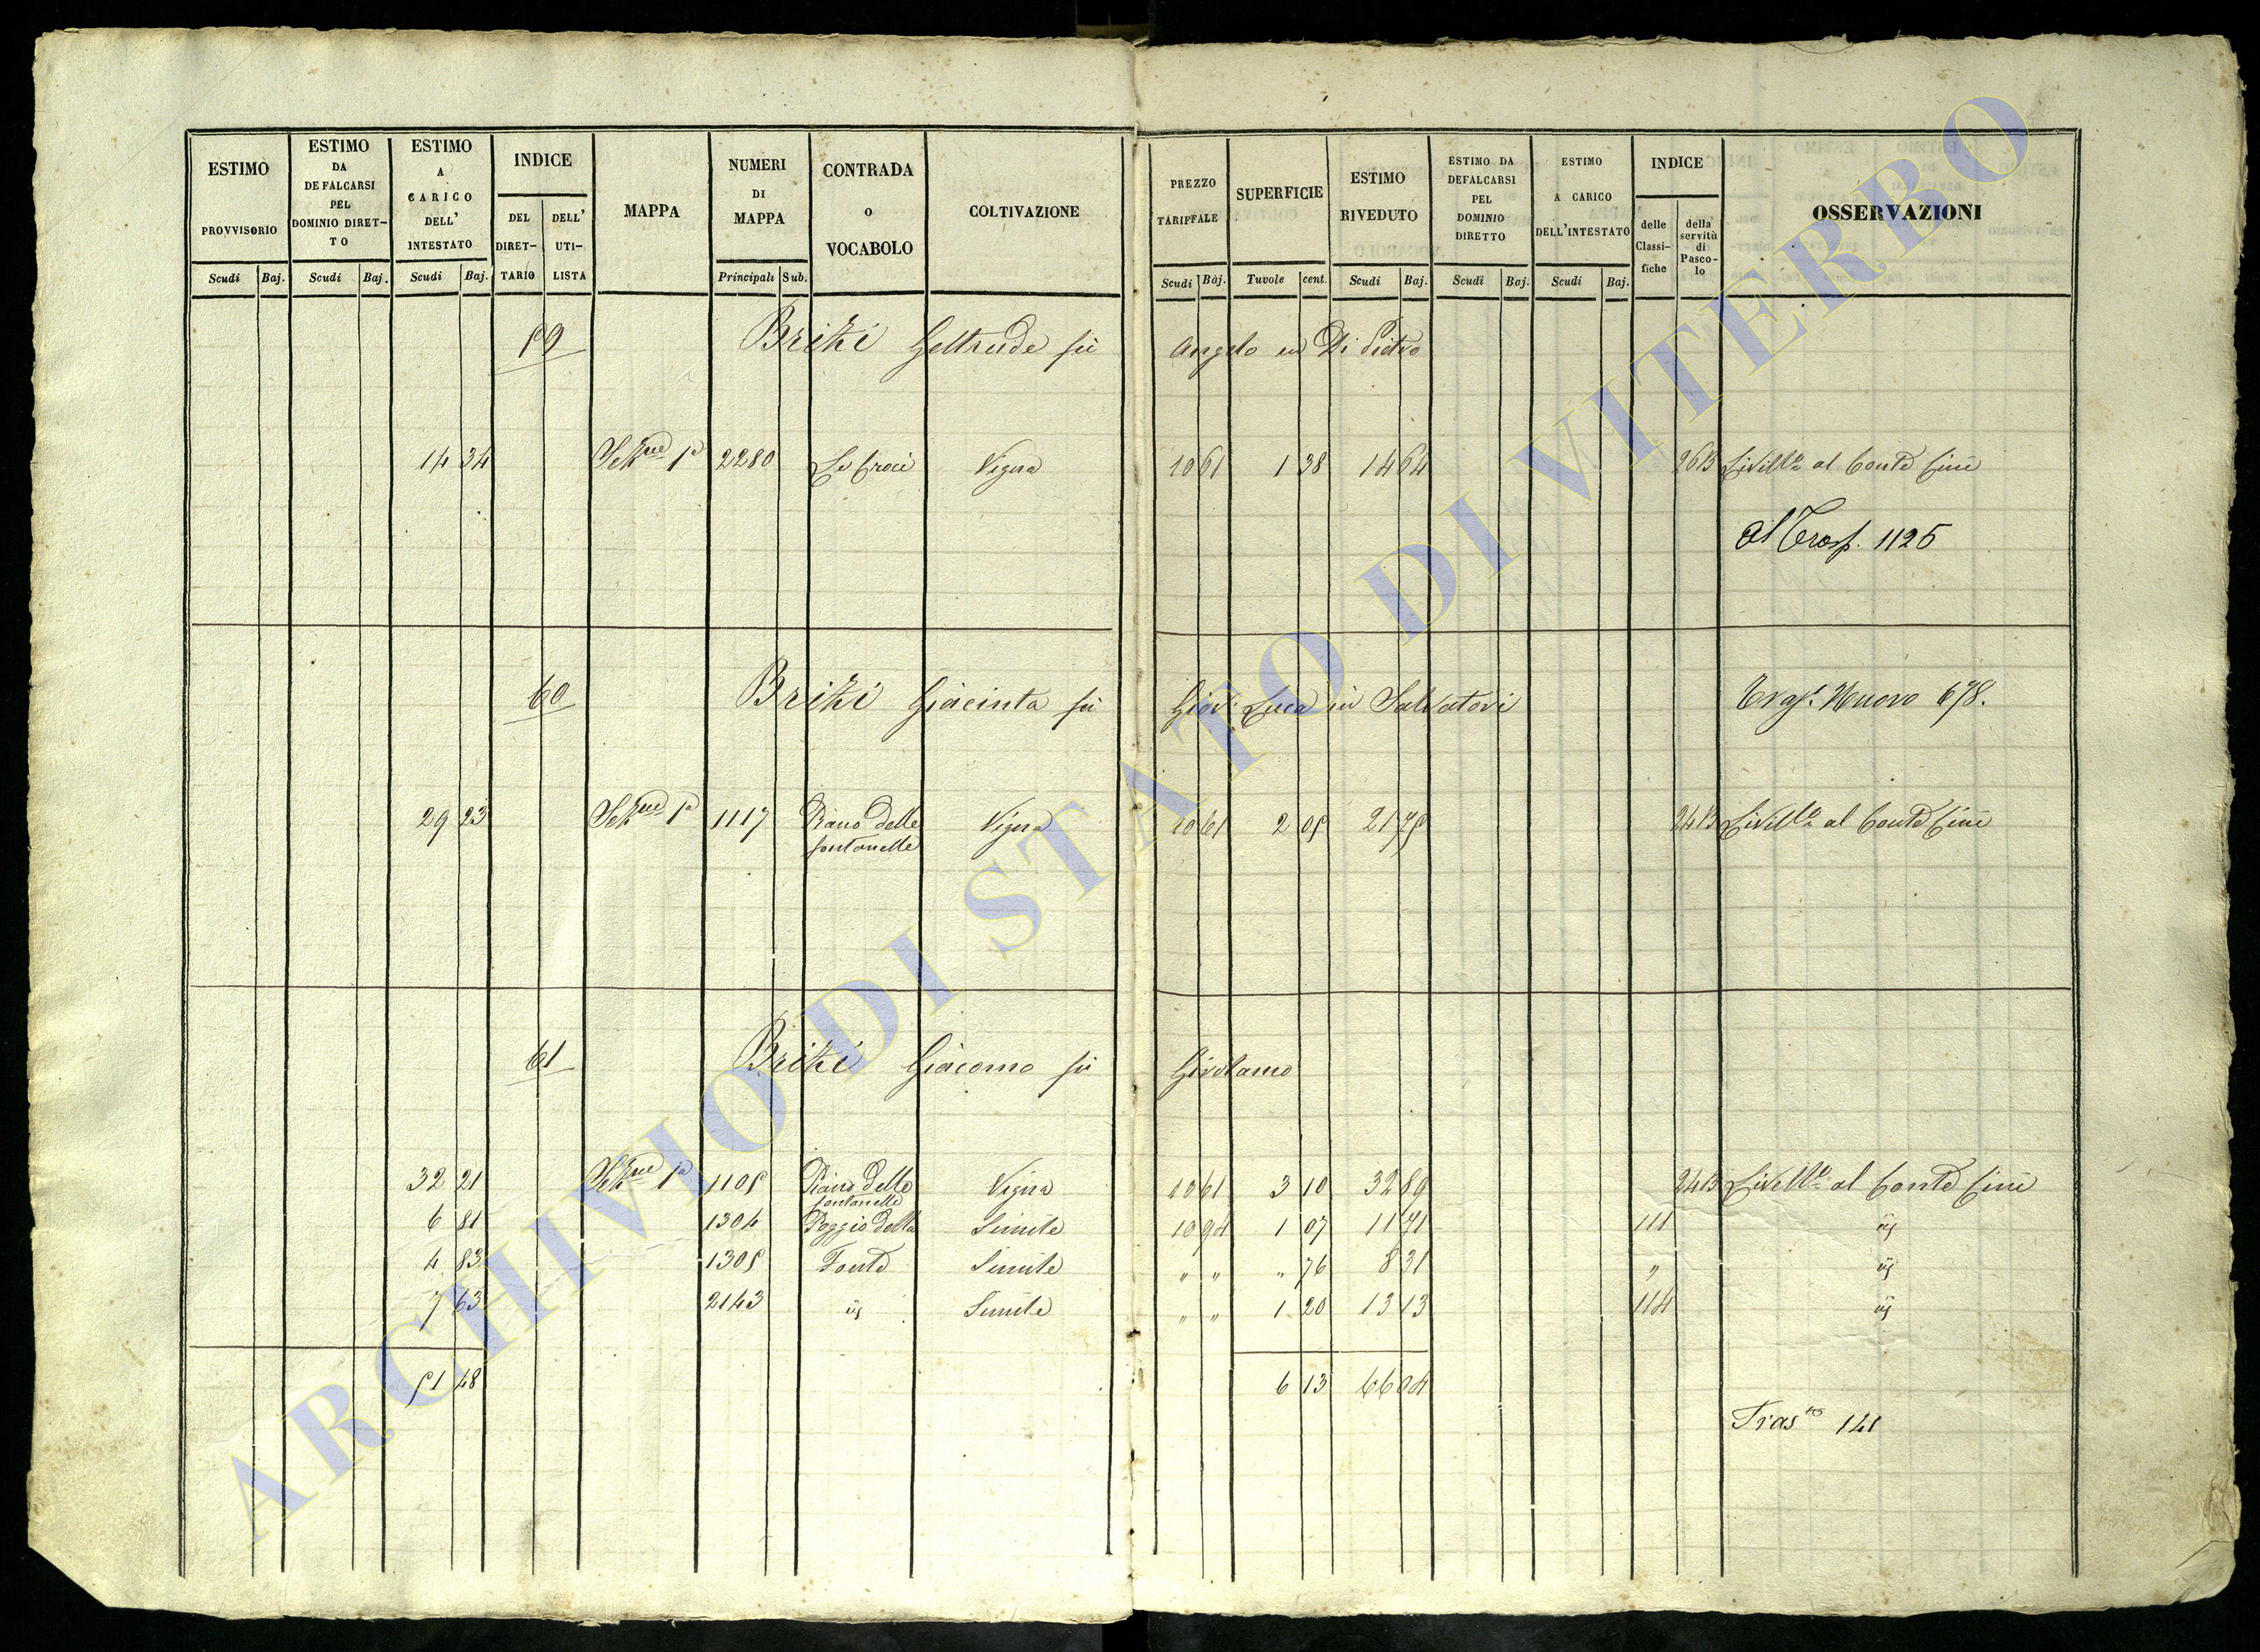 ESTIMO PROVVISORIO
ESTIMO DA DEFALCARSI PEL DOMINIO DIRETTO
ESTIMO A CARICO DELL' INTESTATO
INDICE
DEL DIRETTARIO
DELL' UTILISTA
MAPPA
NUMERI DI MAPPA
CONTRADA o VOCABOLO
COLTIVAZIONE
PREZZO TARIFFALE
SUPERFICIE
ESTIMO RIVEDUTO
ESTIMO DA DEFALCARSI PEL DOMINIO DIRETTO
ESTIMO A CARICO DELL'INTESTATO
INDICE
delle Classifiche
della servitù di Pascolo
OSSERVAZIONI
Scudi Baj. Scudi Baj. Scudi Baj. Principali Sub. Scudi Baj. Tavole cent. Scudi Baj. Scudi Baj. Scudi Baj.
59 Brizi Geltrude fù Angelo in Di Pietro
14 34 Sezne 1a 2280 Le Croci Vigna 10 61 1 38 14 64 Livello al Conte Cini
Al Trasp. 1125
60 Brizi Giacinta fù Giov: Luca in Salvatori Trasp. Nuovo 678.
29 23 Sezne 1a 1117 Piano delle fontanelle Vigna 10 61 2 05 21 75 Livello al Conte Cini
61 Brizi Giacomo fù Girolamo
32 21 Sezne 1a 1105 Piano delle fontanelle Vigna 10 61 3 10 32 89 Livello al Conte Cini
6 81 1304 Poggio della Simile 10 94 1 07 11 71 111
4 83 1305 Fonte Simile " " " 76 8 31 "
7 63 2143 Simile " " 1 20 13 13 114
51 48 6 13 66 04
Trasto 141
ARCHIVIO DI STATO DI VITERBO